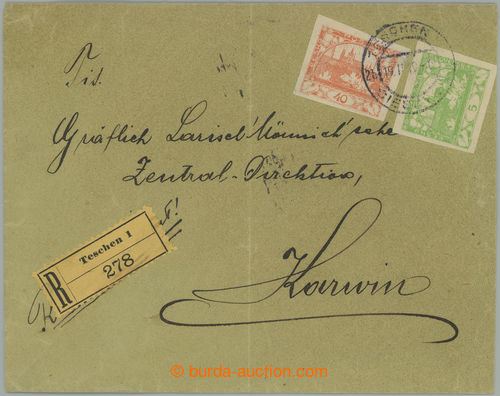 Tit.
40
5
TESCHEN
Gräflich Larisch Mönnich'sche
Zentral-Direktion,
R
Teschen 1
278
Karwin
© burda-auction.com